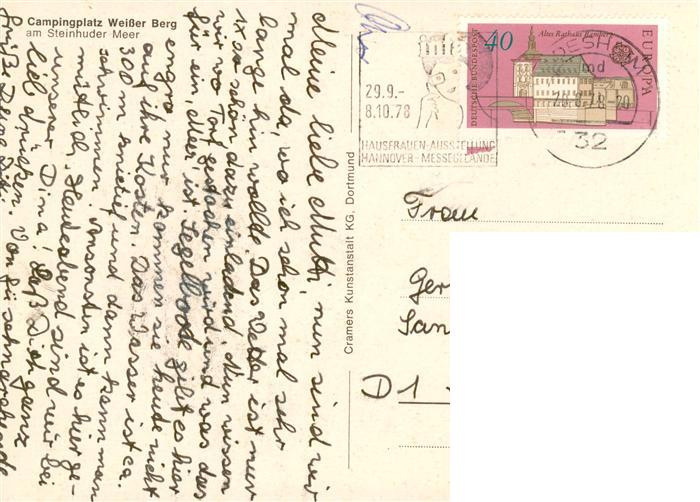 Campingplatz Weißer Berg
am Steinhuder Meer
Meine liebe Mutti, nun sind wir
mal da, wo ich schon mal sehr
lange hin wollte. Das Wetter ist nur
so schön dazu einladend. Nun wissen
wir wo Torf gestochen wird und was das
für ein Meer ist. Segelboote gibt es hier
enorm nur kommen sie heute nicht
auf ihre Kosten. Das Wasser ist ca.
300 m knietief und dann kann man
schwimmen. Ansonsten ist es hier ge-
mütlich. Heute abend sind wir bei
unserer Dina! Laß Dich ganz
lieb drücken. Von
Grüße Deine
Cramers Kunstanstalt KG, Dortmund
29.9.-
8.10.78
HAUSFRAUEN-AUSSTELLUNG
HANNOVER-MESSEGELÄNDE
DEUTSCHE BUNDESPOST
40
Altes Rathaus Bamberg
EUROPA
md
32
Frau
Ger
San
D 1